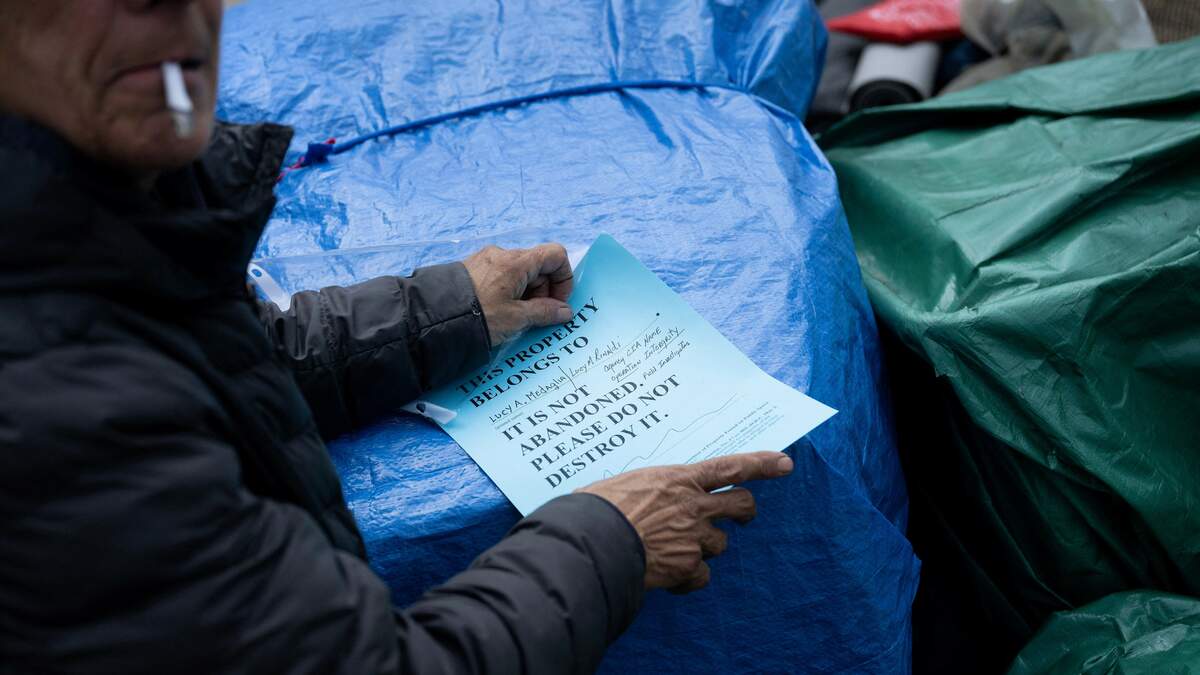 THIS PROPERTY
BELONGS TO
Lucy A. Medaglia / Lucy A. Rinaldi
Agency CIA NAME
Operation Integrity
Field Investigator
IT IS NOT
ABANDONED.
PLEASE DO NOT
DESTROY IT.